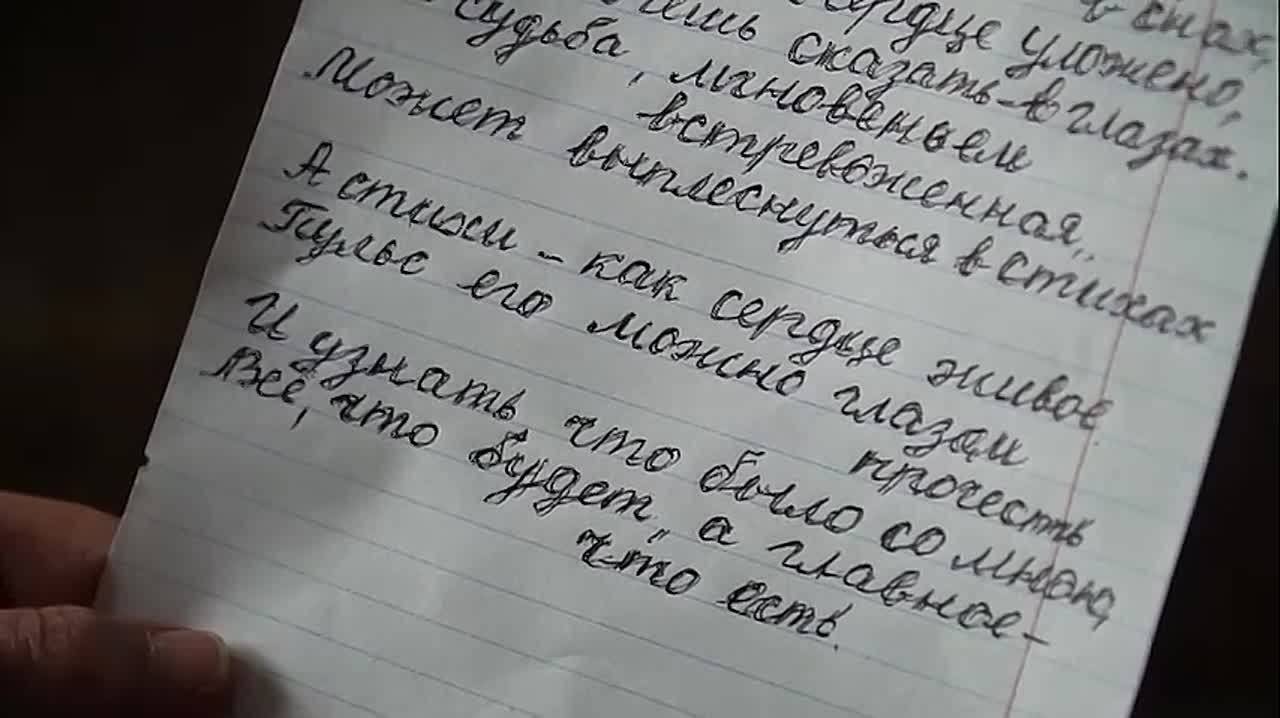 в снах,
сердце уложено,
сказать - в глазах.
судьба, мгновеньем
встревоженная,
Может выплеснуться в стихах
А стихи - как сердце живое
Пульс его можно глазам
прочесть
И узнать что было со мною,
Всё, что будет, а главное -
что есть.